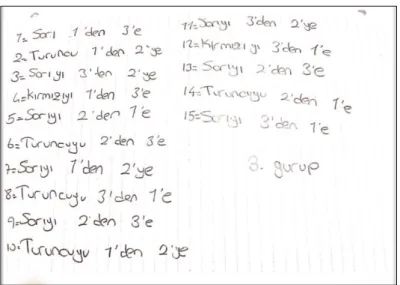 1= Sarı 1'den 3'e
2= Turuncu 1'den 2'ye
3= Sarıyı 3'ten 2'ye
4=Kırmızıyı 1'den 3'e
5=Sarıyı 2'den 1'e
6=Turuncuyu 2'den 3'e
7=Sarıyı 1'den 2'ye
8=Turuncuyu 3'den 1'e
9=Sarıyı 2'den 3'e
10=Turuncuyu 1'den 2'ye
11=Sarıyı 3'den 2'ye
12=Kırmızıyı 3'den 1'e
13=Sarıyı 2'den 3'e
14=Turuncuyu 2'den 1'e
15=Sarıyı 3'den 1'e
3. gurup